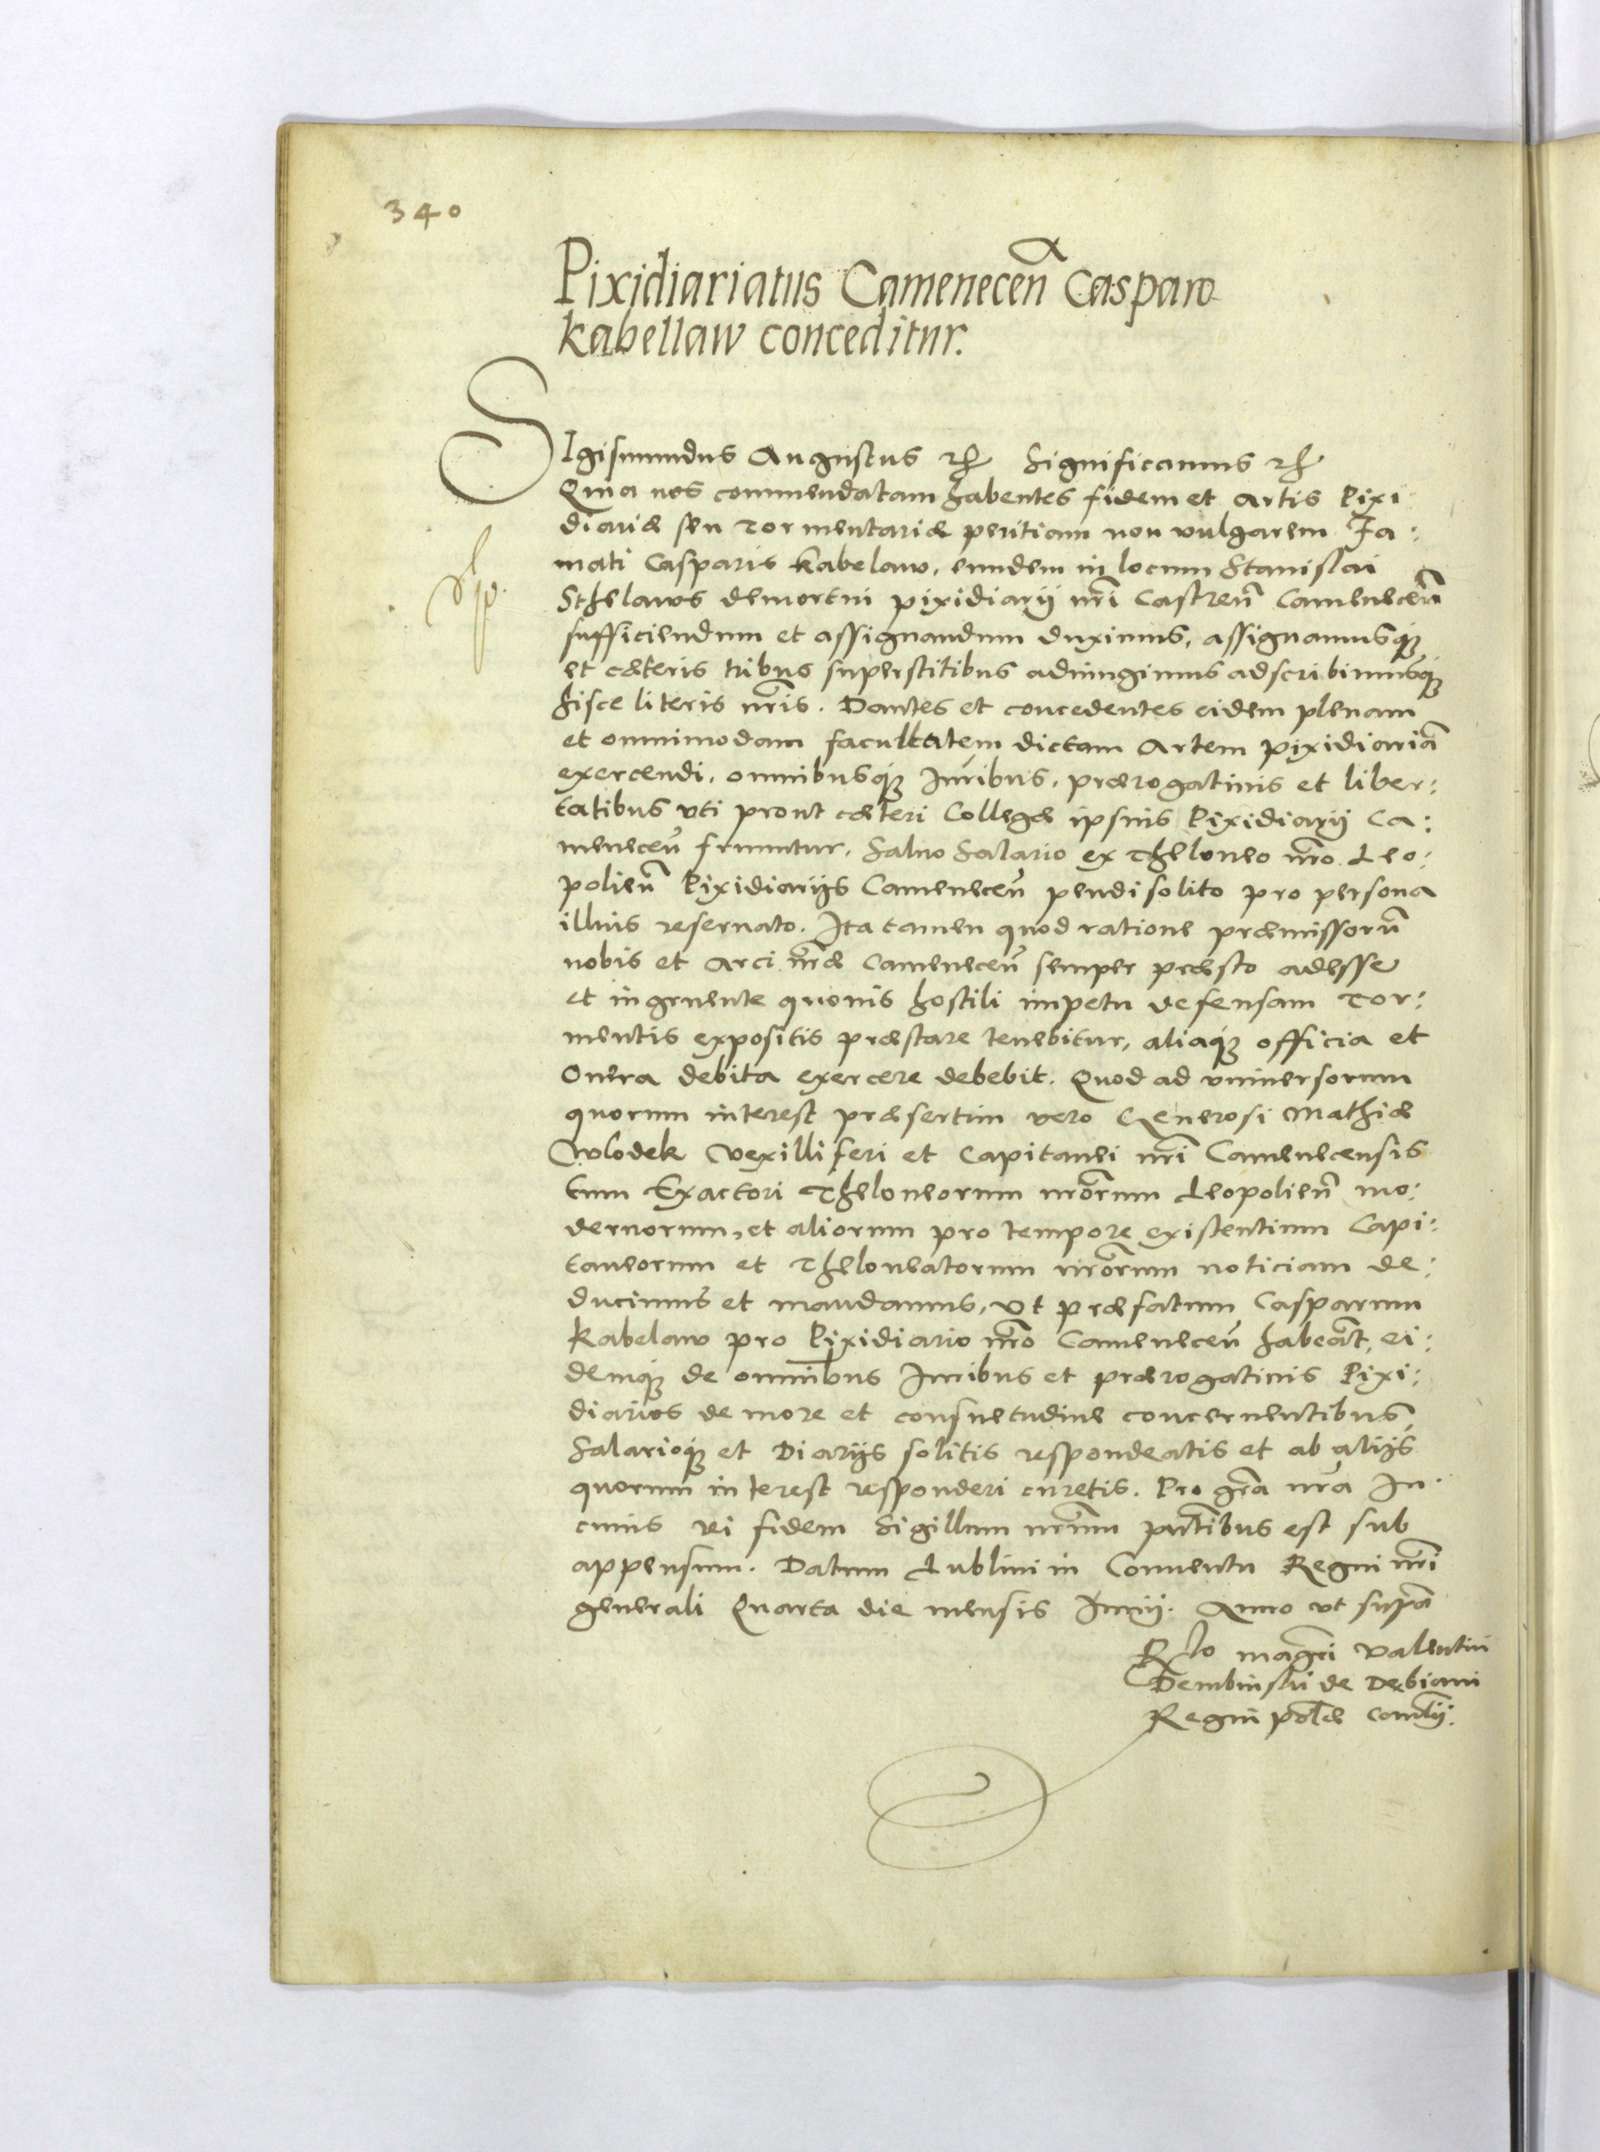 340
Pixidiariatus Camenecen̄ Casparo
kabellaw conceditur.
SIgismundus Augustus etc Significamus etc
Quia nos commendatam habentes fidem et Artis Pixi
diariæ seu Tormentariæ peritiam non vulgarem Fa:
mati Casparis Kabelaw, eundem in locum Stanislai
Sthelawos demortui pixidiarij nr̄i Castren̄ Camenecen̄
sufficiendum et assignandum duximus, assignamusq̨
et cæteris tribus superstitibus adiungimus adscribimusq̨
hisce literis nr̄is. Dantes et concedentes eidem plenam
et omnimodam facultatem dictam Artem pixidiariā
exercendi, omnibusq̨ Iuribus, prærogatiuis et liber:
tatibus vti prout cæteri Collegæ ipsius Pixidiarij Ca:
menecen̄ fruuntur, Saluo Salario ex Theloneo nr̄o Leo:
polien̄ Pixidiarijs Camenecen̄ pendi solito pro persona
illius reseruato. Ita tamen quod ratione præmissorū
nobis et Arci nr̄æ Camenecen̄ semper præsto adesse
et ingruente quouis hostili impetu defensam Tor:
mentis expositis præstare tenebitur, aliaq̨ officia et
Onera debita exercere debebit. Quod ad vniuersorum
quorum interest præsertim vero Generosi Mathiæ
Wlodek Vexilliferi et Capitanei nr̄i Camenecensis
tum Exactori Theloneorum nr̄orum Leopolien̄ mo:
dernorum, et aliorum pro tempore existentium Capi:
taneorum et Theloneatorum nr̄orum noticiam de:
ducimus et mandamus, Vt præfatum Casparum
Kabelaw pro Pixidiario nr̄o Camenecen̄ habeāt, ei:
demq̨ de omnibus Iuribus et prærogatiuis Pixi:
diarios de more et consuetudine concernentibus,
Salarioq̨ et Diarijs solitis respondeatis et ab alijs
quorum interest responderi curetis. Pro gr̄a nr̄a In
cuius rei fidem Sigillum nr̄um pn̄tibus est sub
appensum. Datum Lublini in Conuentu Regni nr̄i
generali Quarta die mensis Iunij. Anno vt supā
Rlo magci Valentin
Dembinski de Debiani
Regni polæ Canc̄ij.